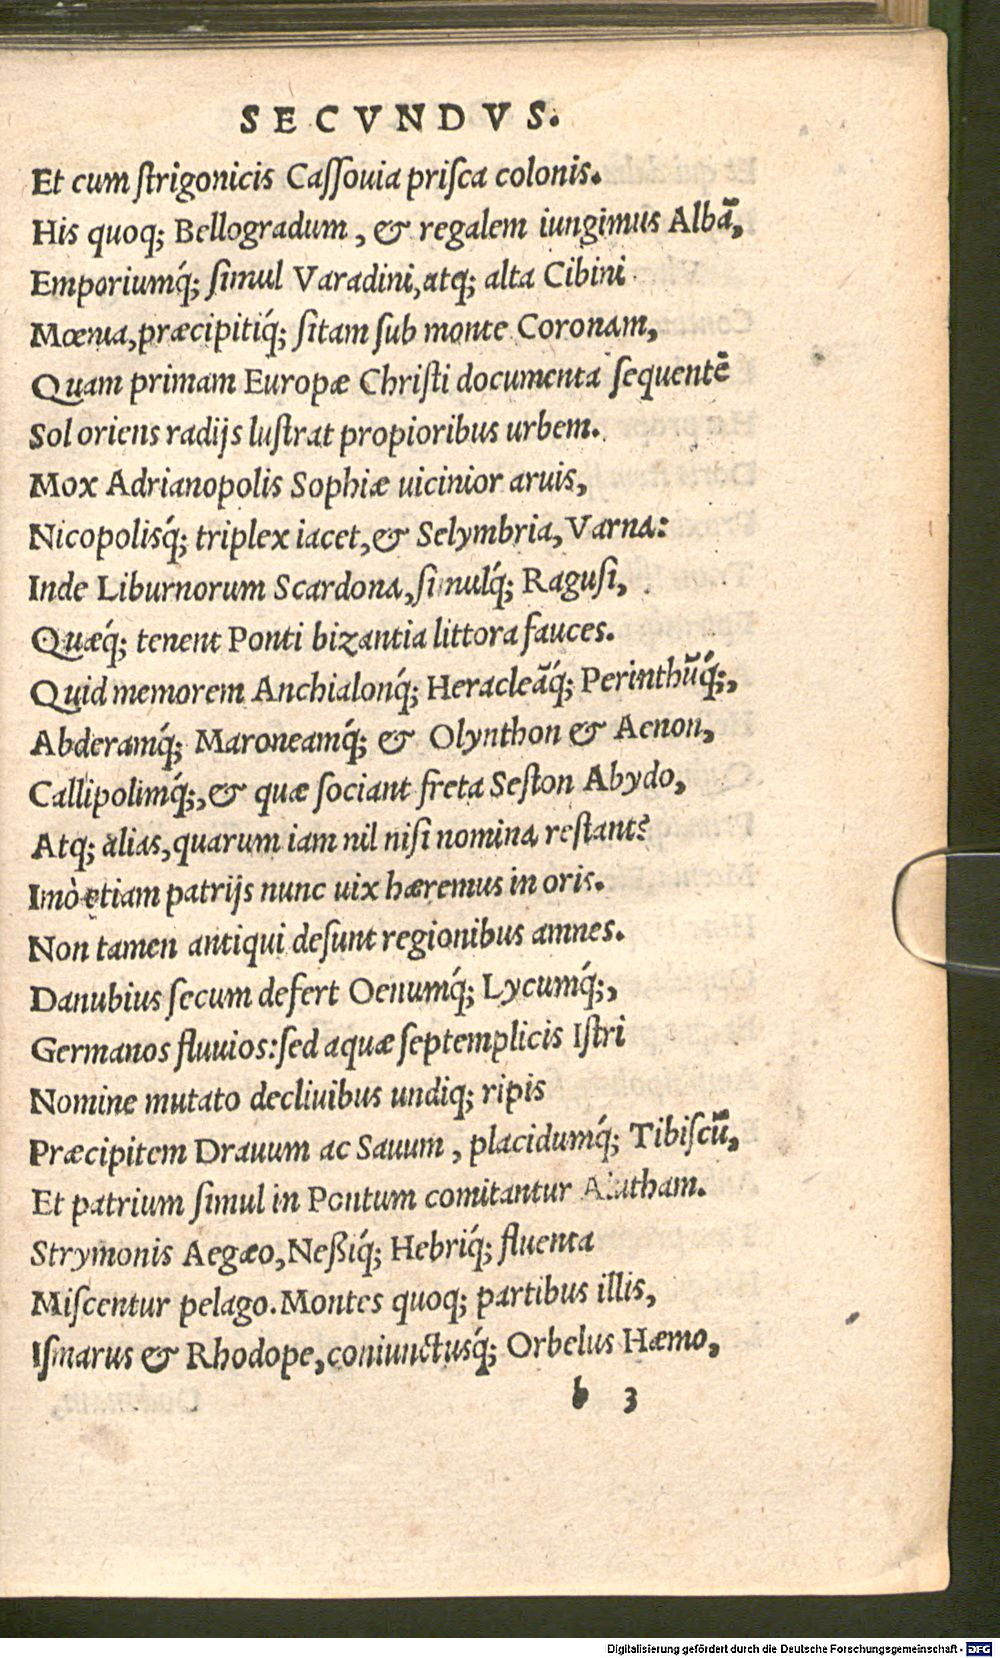 SECVNDVS.
Et cum ſtrigonicis Caſſouia priſca colonis.
His quoq; Bellogradum, & regalem iungimus Albã,
Emporiumq́; ſimul Varadini, atq; alta Cibini
Mœnia, præcipitiq́; ſitam ſub monte Coronam,
Quam primam Europæ Chriſti documenta ſequentẽ
Sol oriens radijs luſtrat propioribus urbem.
Mox Adrianopolis Sophiæ uicinior aruis,
Nicopolisq́; triplex iacet, & Selymbria, Varna:
Inde Liburnorum Scardona, ſimulq́; Raguſi,
Quæq́; tenent Ponti bizantia littora fauces.
Quid memorem Anchialonq́; Heracleãq́; Perinthũq́;,
Abderamq́; Maroneamq́; & Olynthon & Aenon,
Callipolimq́;, & quæ ſociant freta Seſton Abydo,
Atq; alias, quarum iam nil niſi nomina reſtant?
Imò etiam patrijs nunc uix hæremus in oris.
Non tamen antiqui deſunt regionibus amnes.
Danubius ſecum defert Oenumq́; Lycumq́;,
Germanos fluuios: ſed aquæ ſeptemplicis Iſtri
Nomine mutato decliuibus undiq; ripis
Præcipitem Drauum ac Sauum, placidumq́; Tibiſcũ,
Et patrium ſimul in Pontum comitantur
Strymonis Aegæo, Neßiq́; Hebriq́; fluenta
Miſcentur pelago. Montes quoq; partibus illis,
Iſmarus & Rhodope, coniunctusq́; Orbelus Hæmo,
b 3
Digitalisierung gefördert durch die Deutsche Forschungsgemeinschaft - DFG